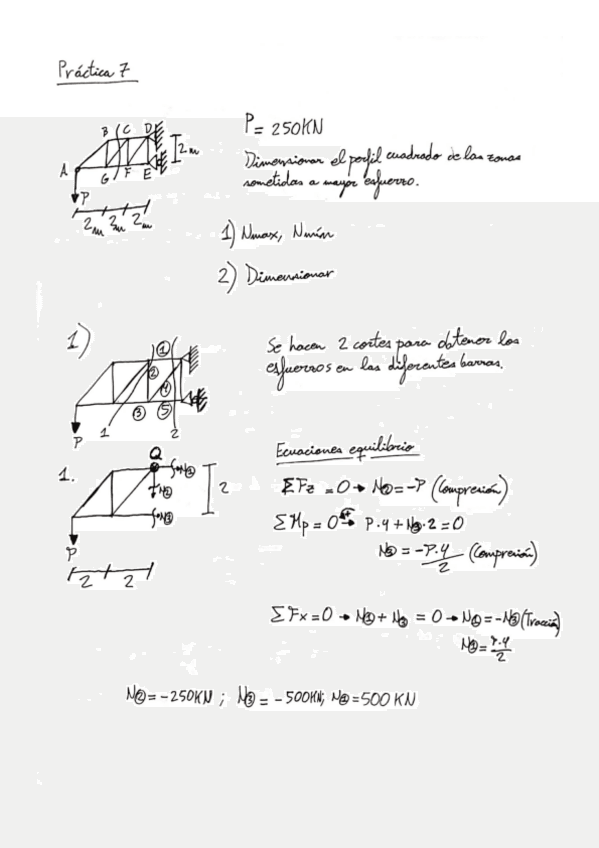 Práctica 7
P = 250KN
Dimensionar el perfil cuadrado de las zonas
sometidas a mayor esfuerzo.
B C D
A G F E
2m
P
2m 2m 2m
1) Nmax, Nmín
2) Dimensionar
1)
① ② ③ ④ ⑤
P 1 2
Se hacen 2 cortes para obtener los
esfuerzos en las diferentes barras.
1.
Q
N①
N②
N③
2
P
2 2
Ecuaciones equilibrio
ΣFz = 0 → N② = -P (Compresión)
ΣMp = 0 → P·4 + N③·2 = 0
N③ = -P·4/2 (Compresión)
ΣFx = 0 → N① + N③ = 0 → N① = -N③ (Tracción)
N① = P·4/2
N② = -250KN ; N③ = -500KN; N① = 500 KN